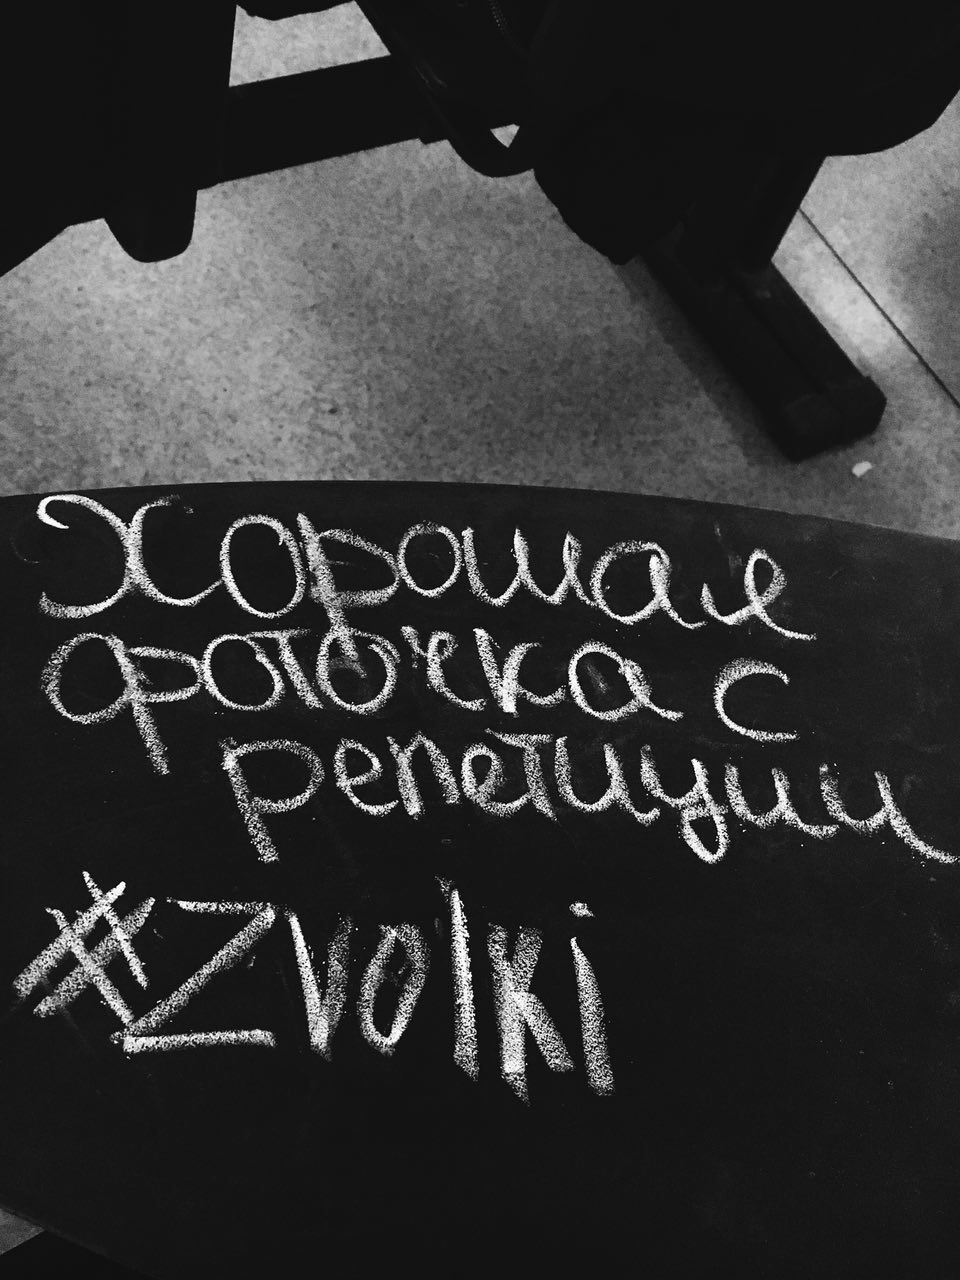 Хорошая
фоточка с
репетиции
#Zvolki